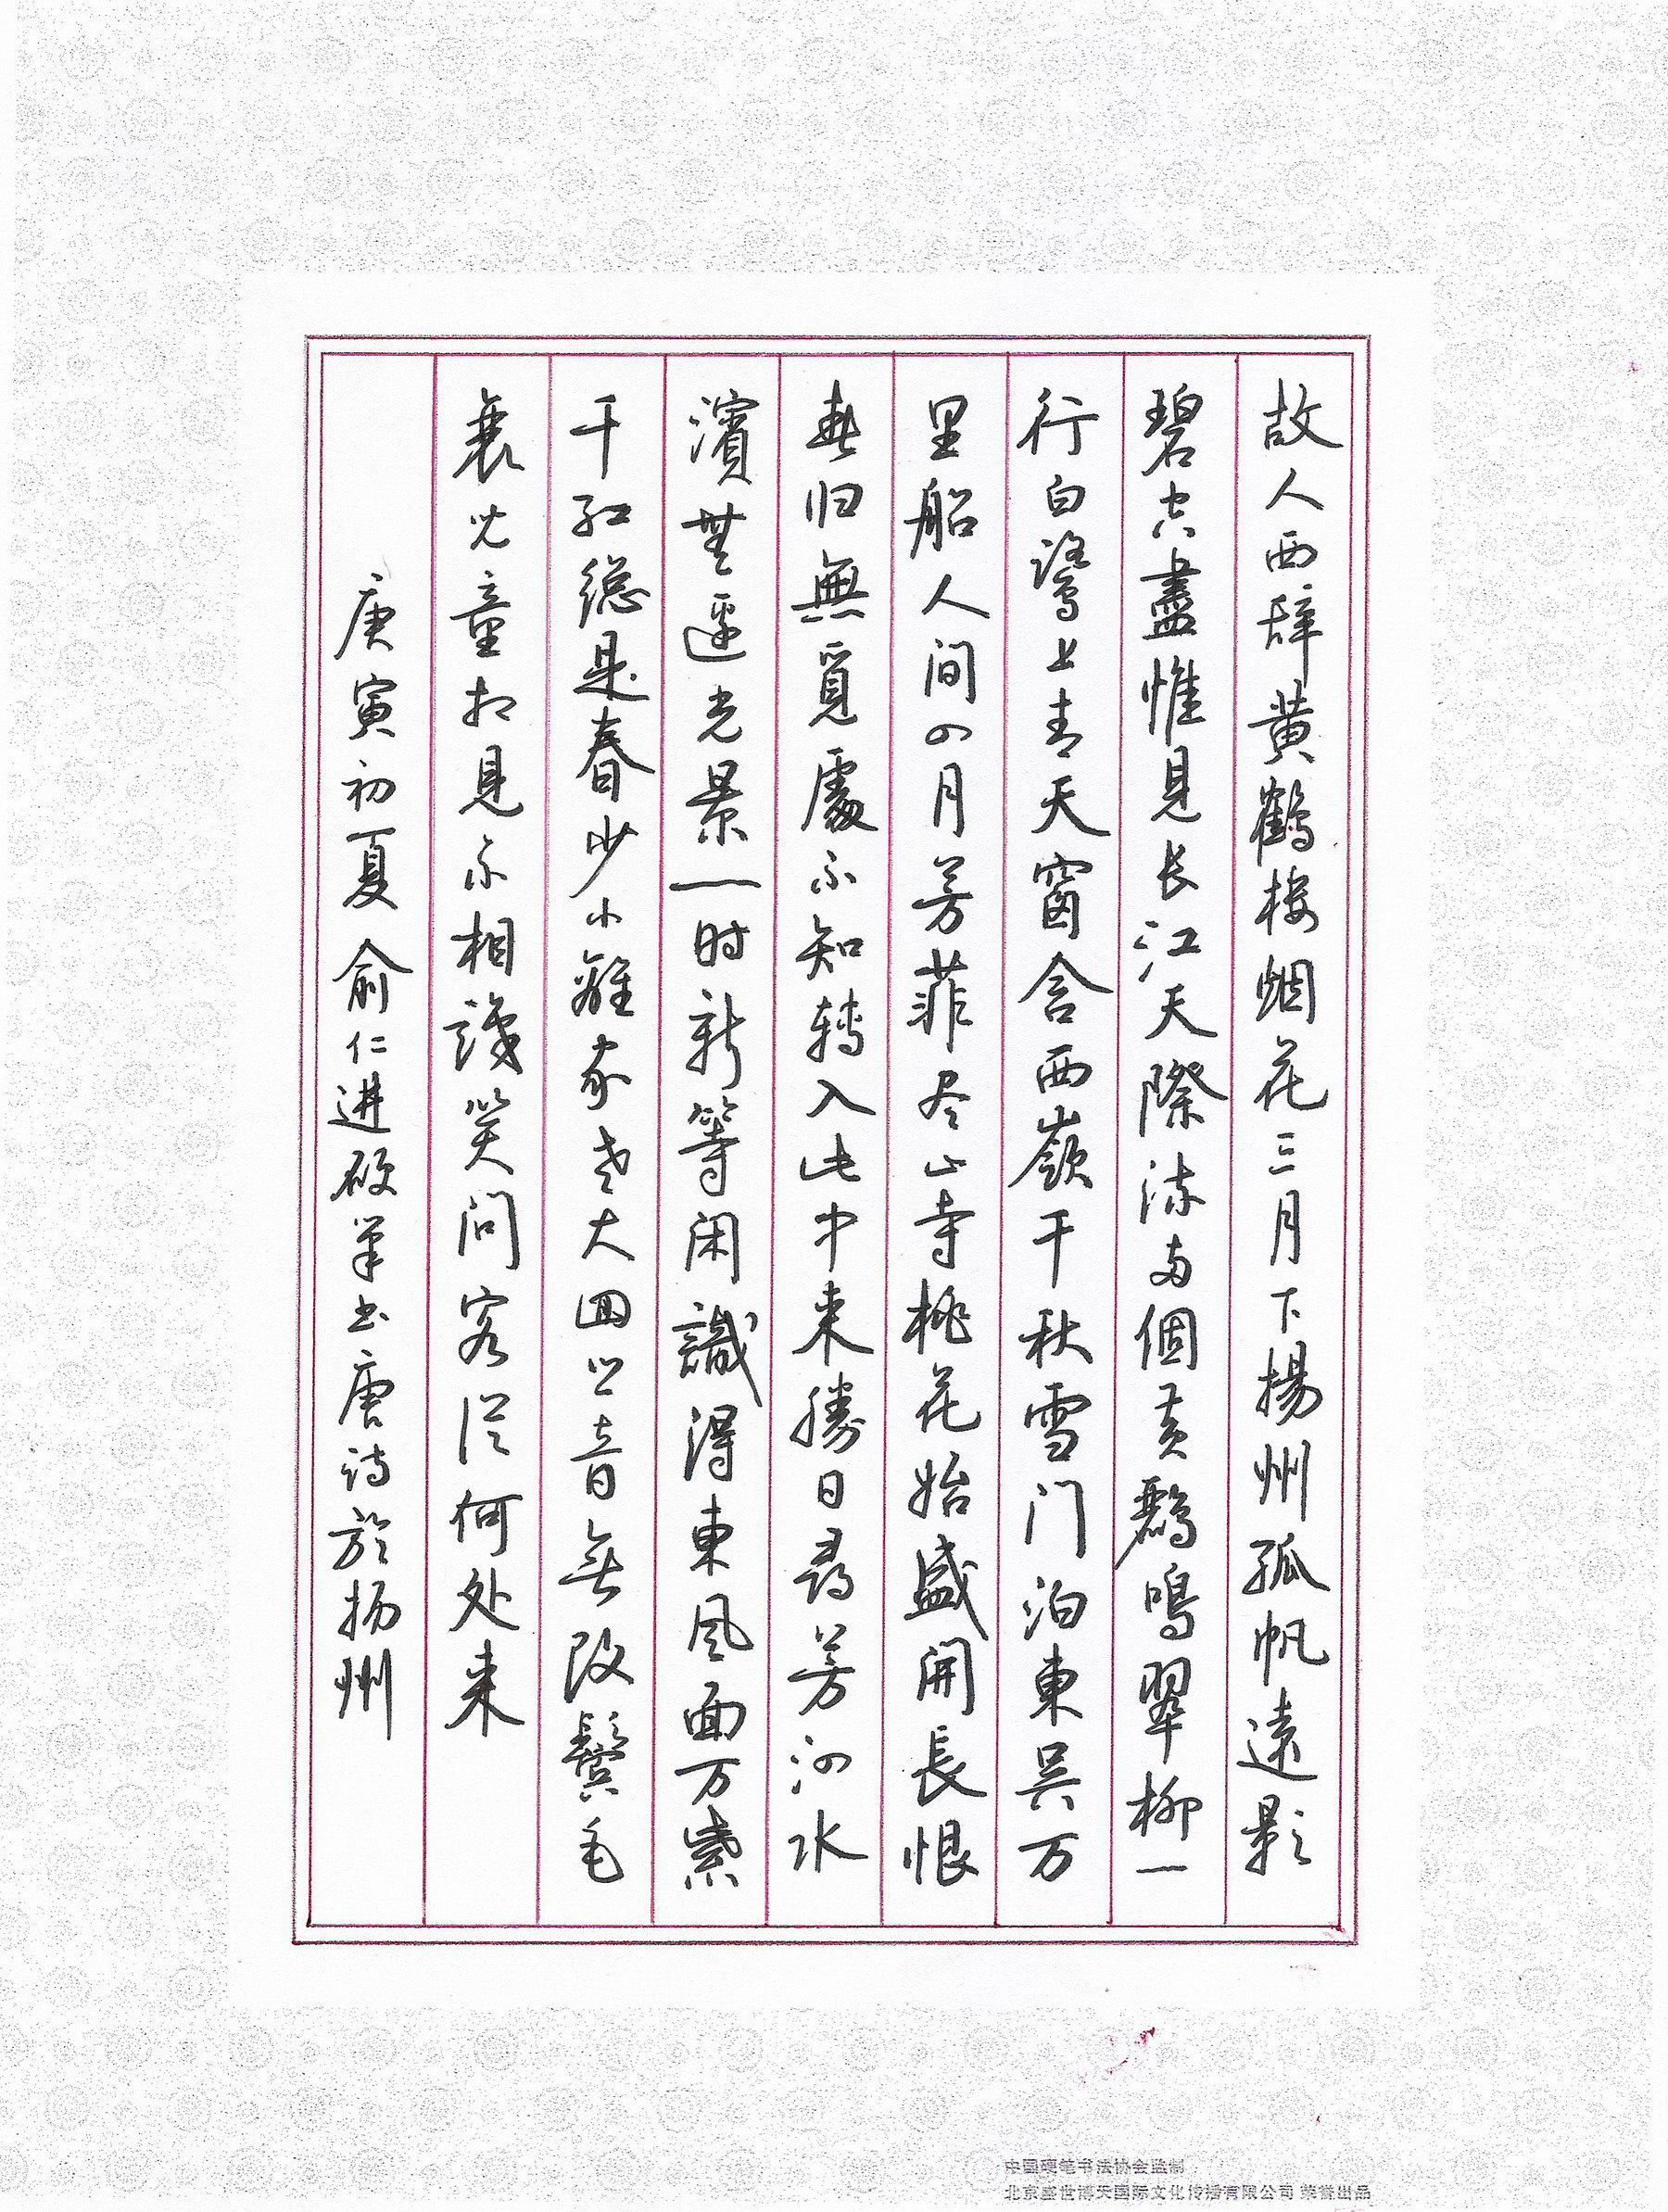 故人西辞黄鹤楼烟花三月下揚州孤帆遠影
碧空盡惟見长江天際流两個黄鸝鳴翠柳一
行白鷺上青天窗含西嶺千秋雪门泊東吴万
里船人间四月芳菲尽山寺桃花始盛開長恨
春归無覓處不知轉入此中来勝日尋芳泗水
濱無邊光景一时新等闲識得東风面万紫
千红總是春少小離家老大回乡音无改鬓毛
衰儿童相見不相識笑问客從何处来
庚寅初夏 俞仁进硬笔书唐诗於扬州
中国硬笔书法协会监制
北京盛世博天国际文化传播有限公司 荣誉出品